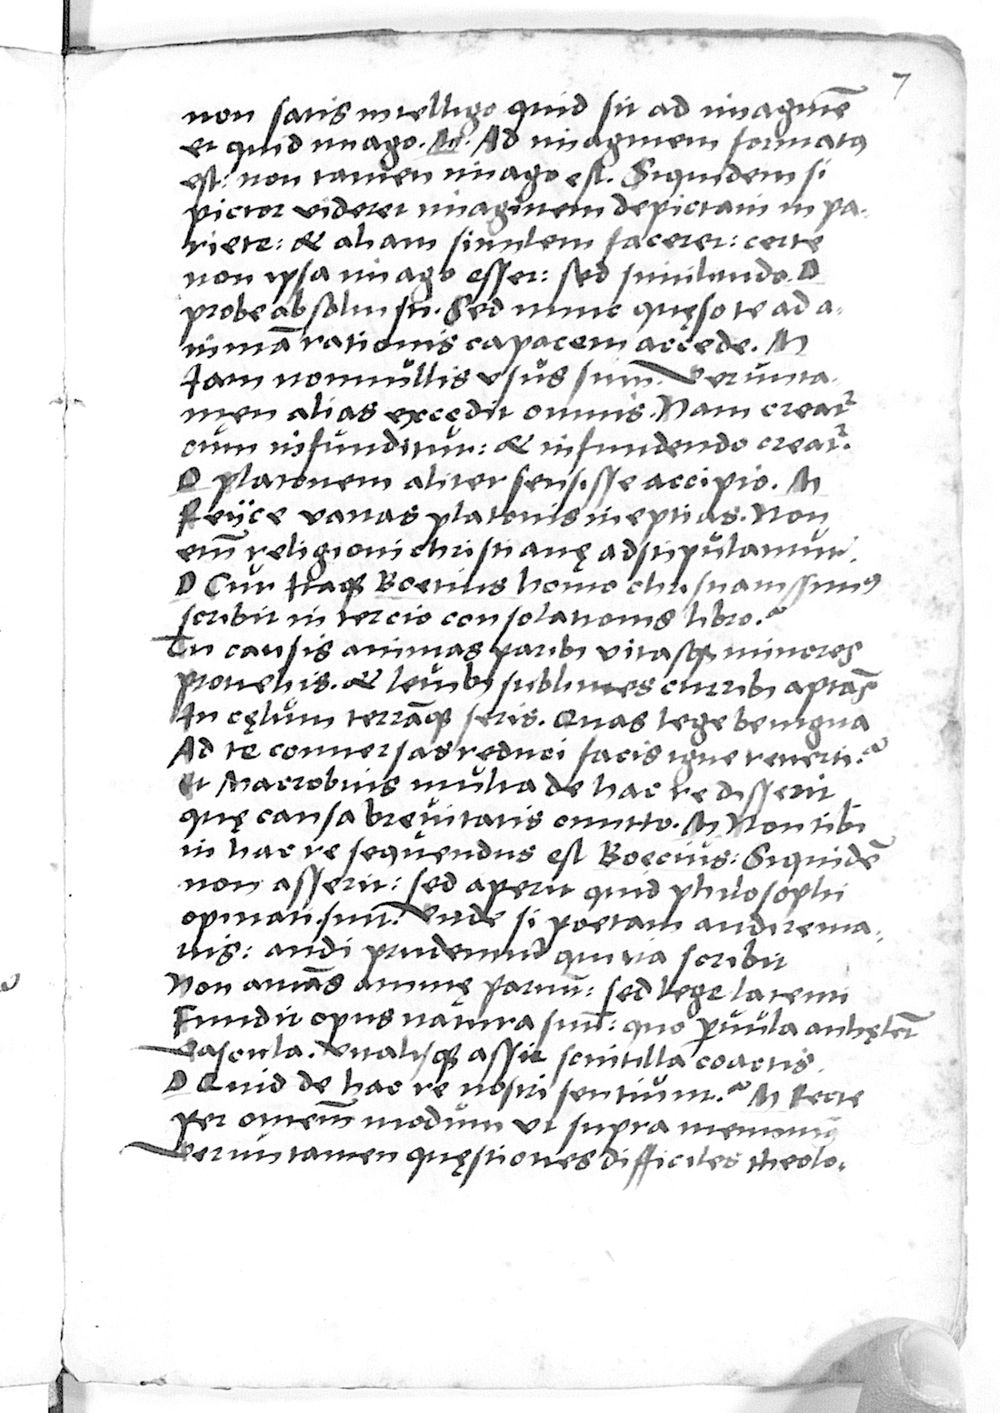 7
non satis intelligo quid sit ad imaginē
et quid imago. M. Ad imaginem formatꝯ
est: non tamen imago est. Siquidem si
pictor videret imaginem depictam in pa-
riete: & aliam similem faceret: certe
non ipsa imago esset: sed similitudo. D
probe absoluisti. Sed nunc quęso te ad a-
nimā rationis capacem accede. M
Iam nonnullis usus sum. Verunta-
men alias excędit omnis. Nam creat᷑
cum infunditur: & infundendo creat᷑.
D platonem aliter sensisse accipio. M
Reijce vanas platonis ineptias. Non
em̄ religioni christianę adstipulantur.
D Cur itaqꝫ Boetius homo christianissimꝯ
scribit in tercio consolationis libro.
Tu causis animas paribꝫ vitasqꝫ minores
prouehis. & leuibꝫ sublimes curribꝫ aptās
In cęlum terrāqꝫ seris. Quas lege benigna
Ad te conuersas reduci facis igne reuerti.
Et Macrobius multa de hac re disserit
quę causa breuitatis omitto. M Non tibi
in hac re sequendus est Boecius: Siquidē
non asserit: sed aperit quid philosophi
opinati sunt. Unde si poetam audire ma-
uis: audi prudentiū qui ita scribit
Non animās animę partū: sed lege latenti
Fundit opus natura suū: quo ꝑuula anhęlēt
Vascula. vitalisqꝫ assit scintilla coactis.
D Quid de hac re nostri sentiunt. M Recte
per omnem̄ modum ut supra meminimꝯ
Veruntamen quęstiones difficiles theolo-